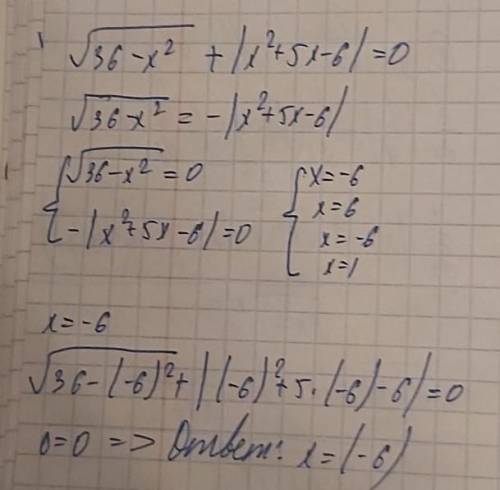 √(36-x²) + |x²+5x-6| = 0
√(36-x²) = -|x²+5x-6|
{ √(36-x²) = 0
-|x²+5x-6| = 0
{ x=-6
x=6
x=-6
x=1
x=-6
√(36-(-6)²) + |(-6)²+5·(-6)-6| = 0
0=0 => Ответ: x=(-6)